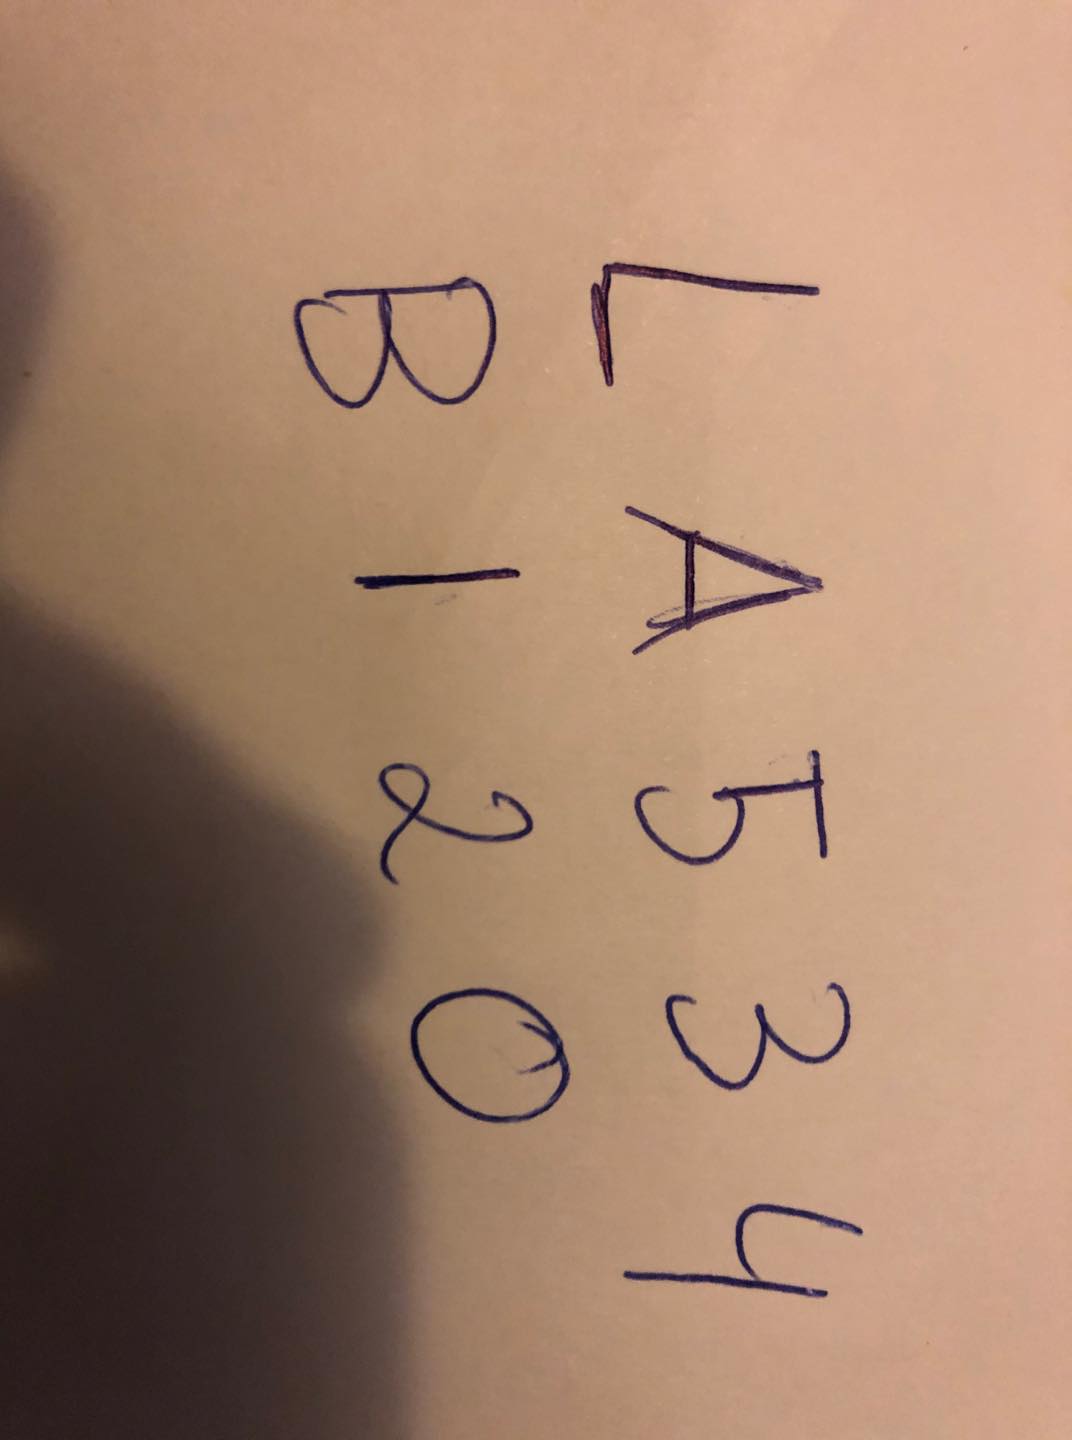 L A 5 3 4
B 1 2 0